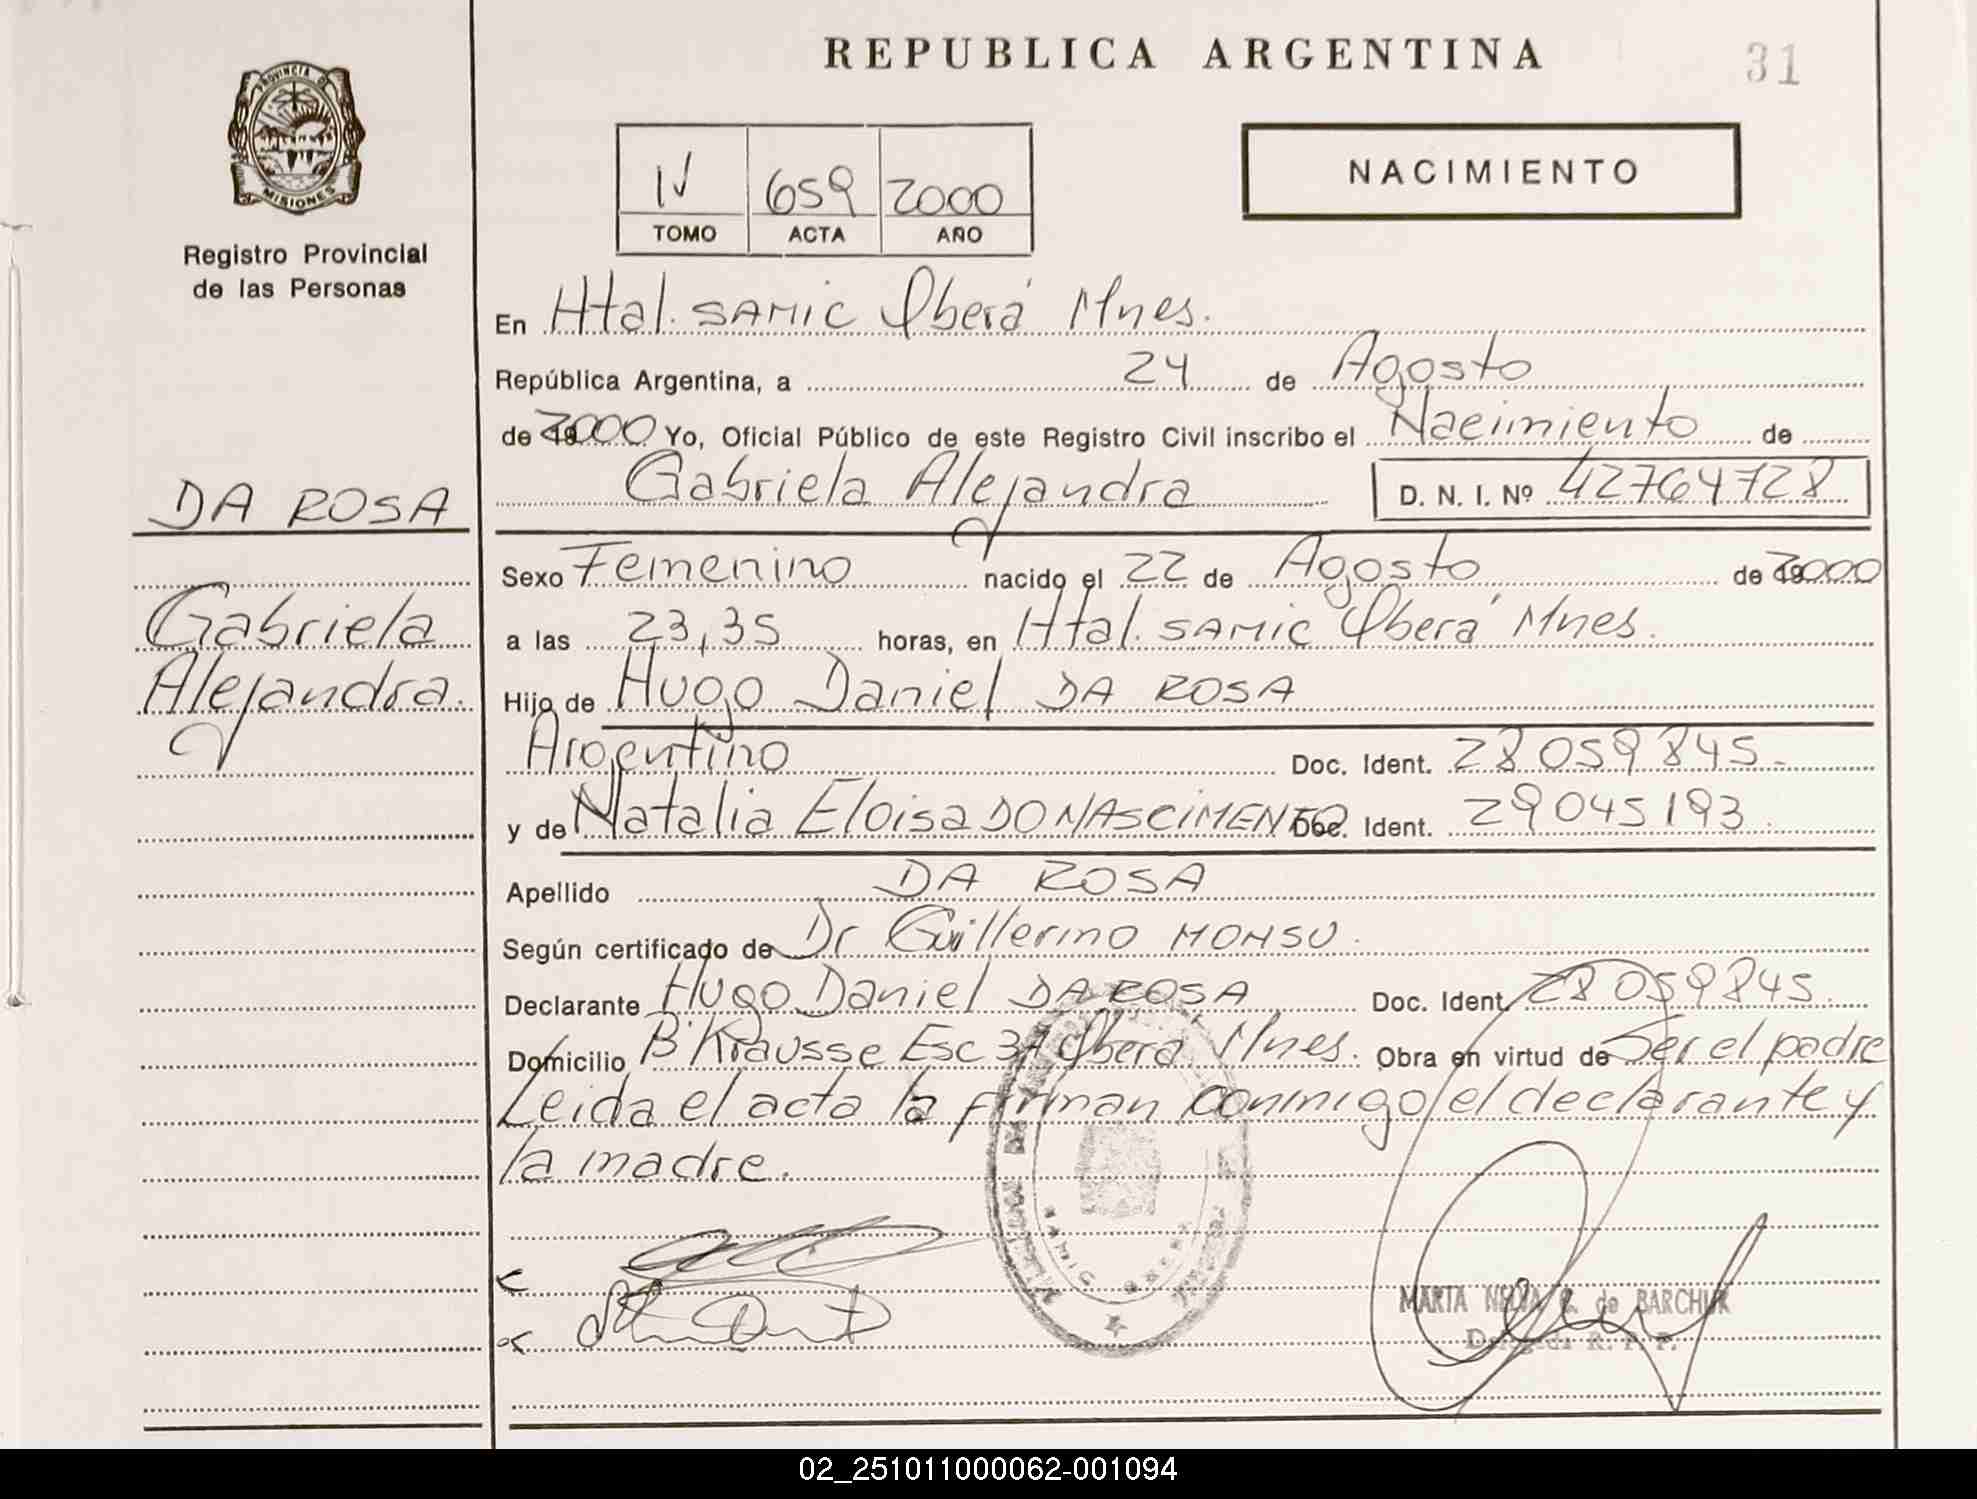 REPUBLICA ARGENTINA
31
PROVINCIA DE
MISIONES
Registro Provincial
de las Personas
IV 659 2000
TOMO ACTA AÑO
NACIMIENTO
En Htal. SAMIC Oberá Mnes.
República Argentina, a 24 de Agosto
de 2000 Yo, Oficial Público de este Registro Civil inscribo el Nacimiento de
Gabriela Alejandra D. N. I. Nº 42764728
DA ROSA
Gabriela
Alejandra.
Sexo Femenino nacido el 22 de Agosto de 2000
a las 23,35 horas, en Htal. SAMIC Oberá Mnes.
Hijo de Hugo Daniel DA ROSA
Argentino Doc. Ident. 28059845.
y de Natalia Eloisa DO NASCIMENTO Doc. Ident. 29045193.
Apellido DA ROSA
Según certificado de Dr Guillermo MONSU.
Declarante Hugo Daniel DA ROSA Doc. Ident. 28059845.
Domicilio B° Krausse Esc 3A Oberá Mnes. Obra en virtud de Ser el padre
Leida el acta la firman conmigo el declarante y
la madre.
SAMIC OBERA
MARTA NELVA de BARCHUK
Delegada R. P. P.
02_251011000062-001094